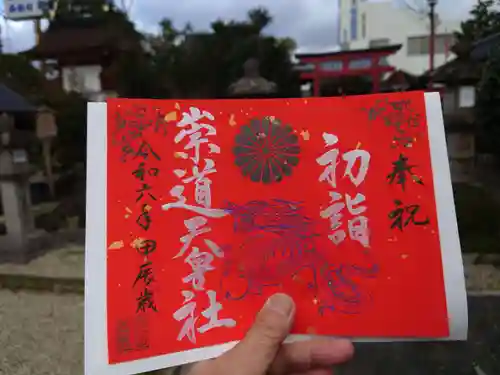 奉祝
初詣
崇道天皇社
令和六年 甲辰歳